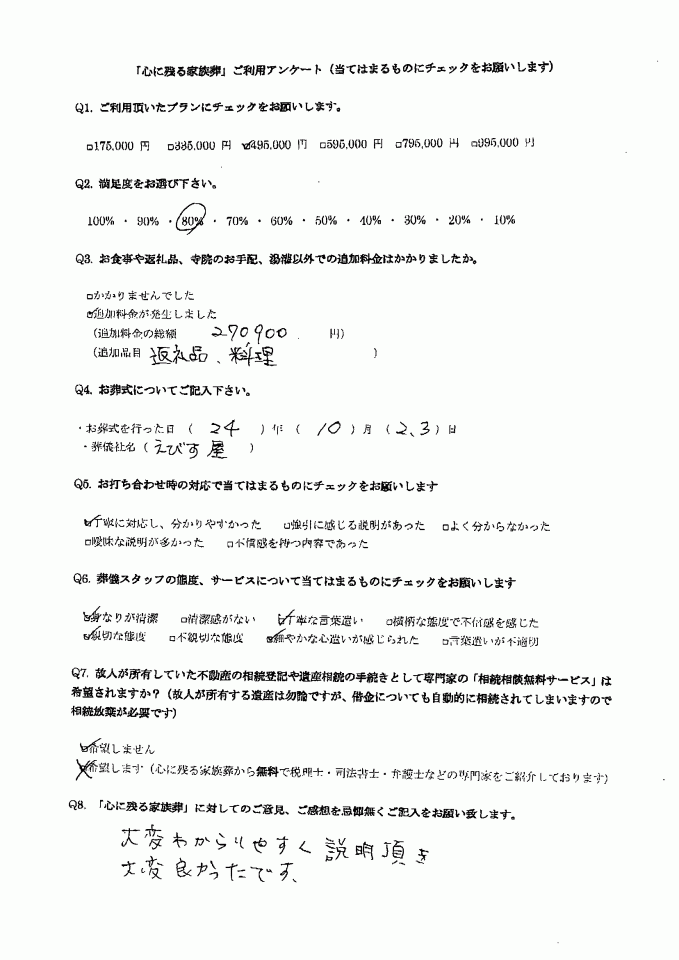 「心に残る家族葬」ご利用アンケート（当てはまるものにチェックをお願いします）
Q1. ご利用頂いたプランにチェックをお願いします。
□175,000 円 □335,000 円 ☑495,000 円 □595,000 円 □795,000 円 □995,000 円
Q2. 満足度をお選び下さい。
100% ・ 90% ・ 80% ・ 70% ・ 60% ・ 50% ・ 40% ・ 30% ・ 20% ・ 10%
Q3. お食事や返礼品、寺院のお手配、湯灌以外での追加料金はかかりましたか。
□かかりませんでした
☑追加料金が発生しました
（追加料金の総額 270,900 円）
（追加品目 返礼品、料理 ）
Q4. お葬式についてご記入下さい。
・お葬式を行った日（ 24 ）年（ 10 ）月（ 2、3 ）日
・葬儀社名（ えびす屋 ）
Q5. お打ち合わせ時の対応で当てはまるものにチェックをお願いします
☑丁寧に対応し、分かりやすかった □強引に感じる説明があった □よく分からなかった
□曖昧な説明が多かった □不信感を持つ内容であった
Q6. 葬儀スタッフの態度、サービスについて当てはまるものにチェックをお願いします
☑身なりが清潔 □清潔感がない ☑丁寧な言葉遣い □横柄な態度で不信感を感じた
☑親切な態度 □不親切な態度 ☑細やかな心遣いが感じられた □言葉遣いが不適切
Q7. 故人が所有していた不動産の相続登記や遺産相続の手続きとして専門家の「相続相談無料サービス」は
希望されますか？（故人が所有する遺産は勿論ですが、借金についても自動的に相続されてしまいますので
相続放棄が必要です）
☑希望しません
☒希望します（心に残る家族葬から無料で税理士・司法書士・弁護士などの専門家をご紹介しております）
Q8. 「心に残る家族葬」に対してのご意見、ご感想を忌憚無くご記入をお願い致します。
大変わかりやすく説明頂き
大変良かったです、